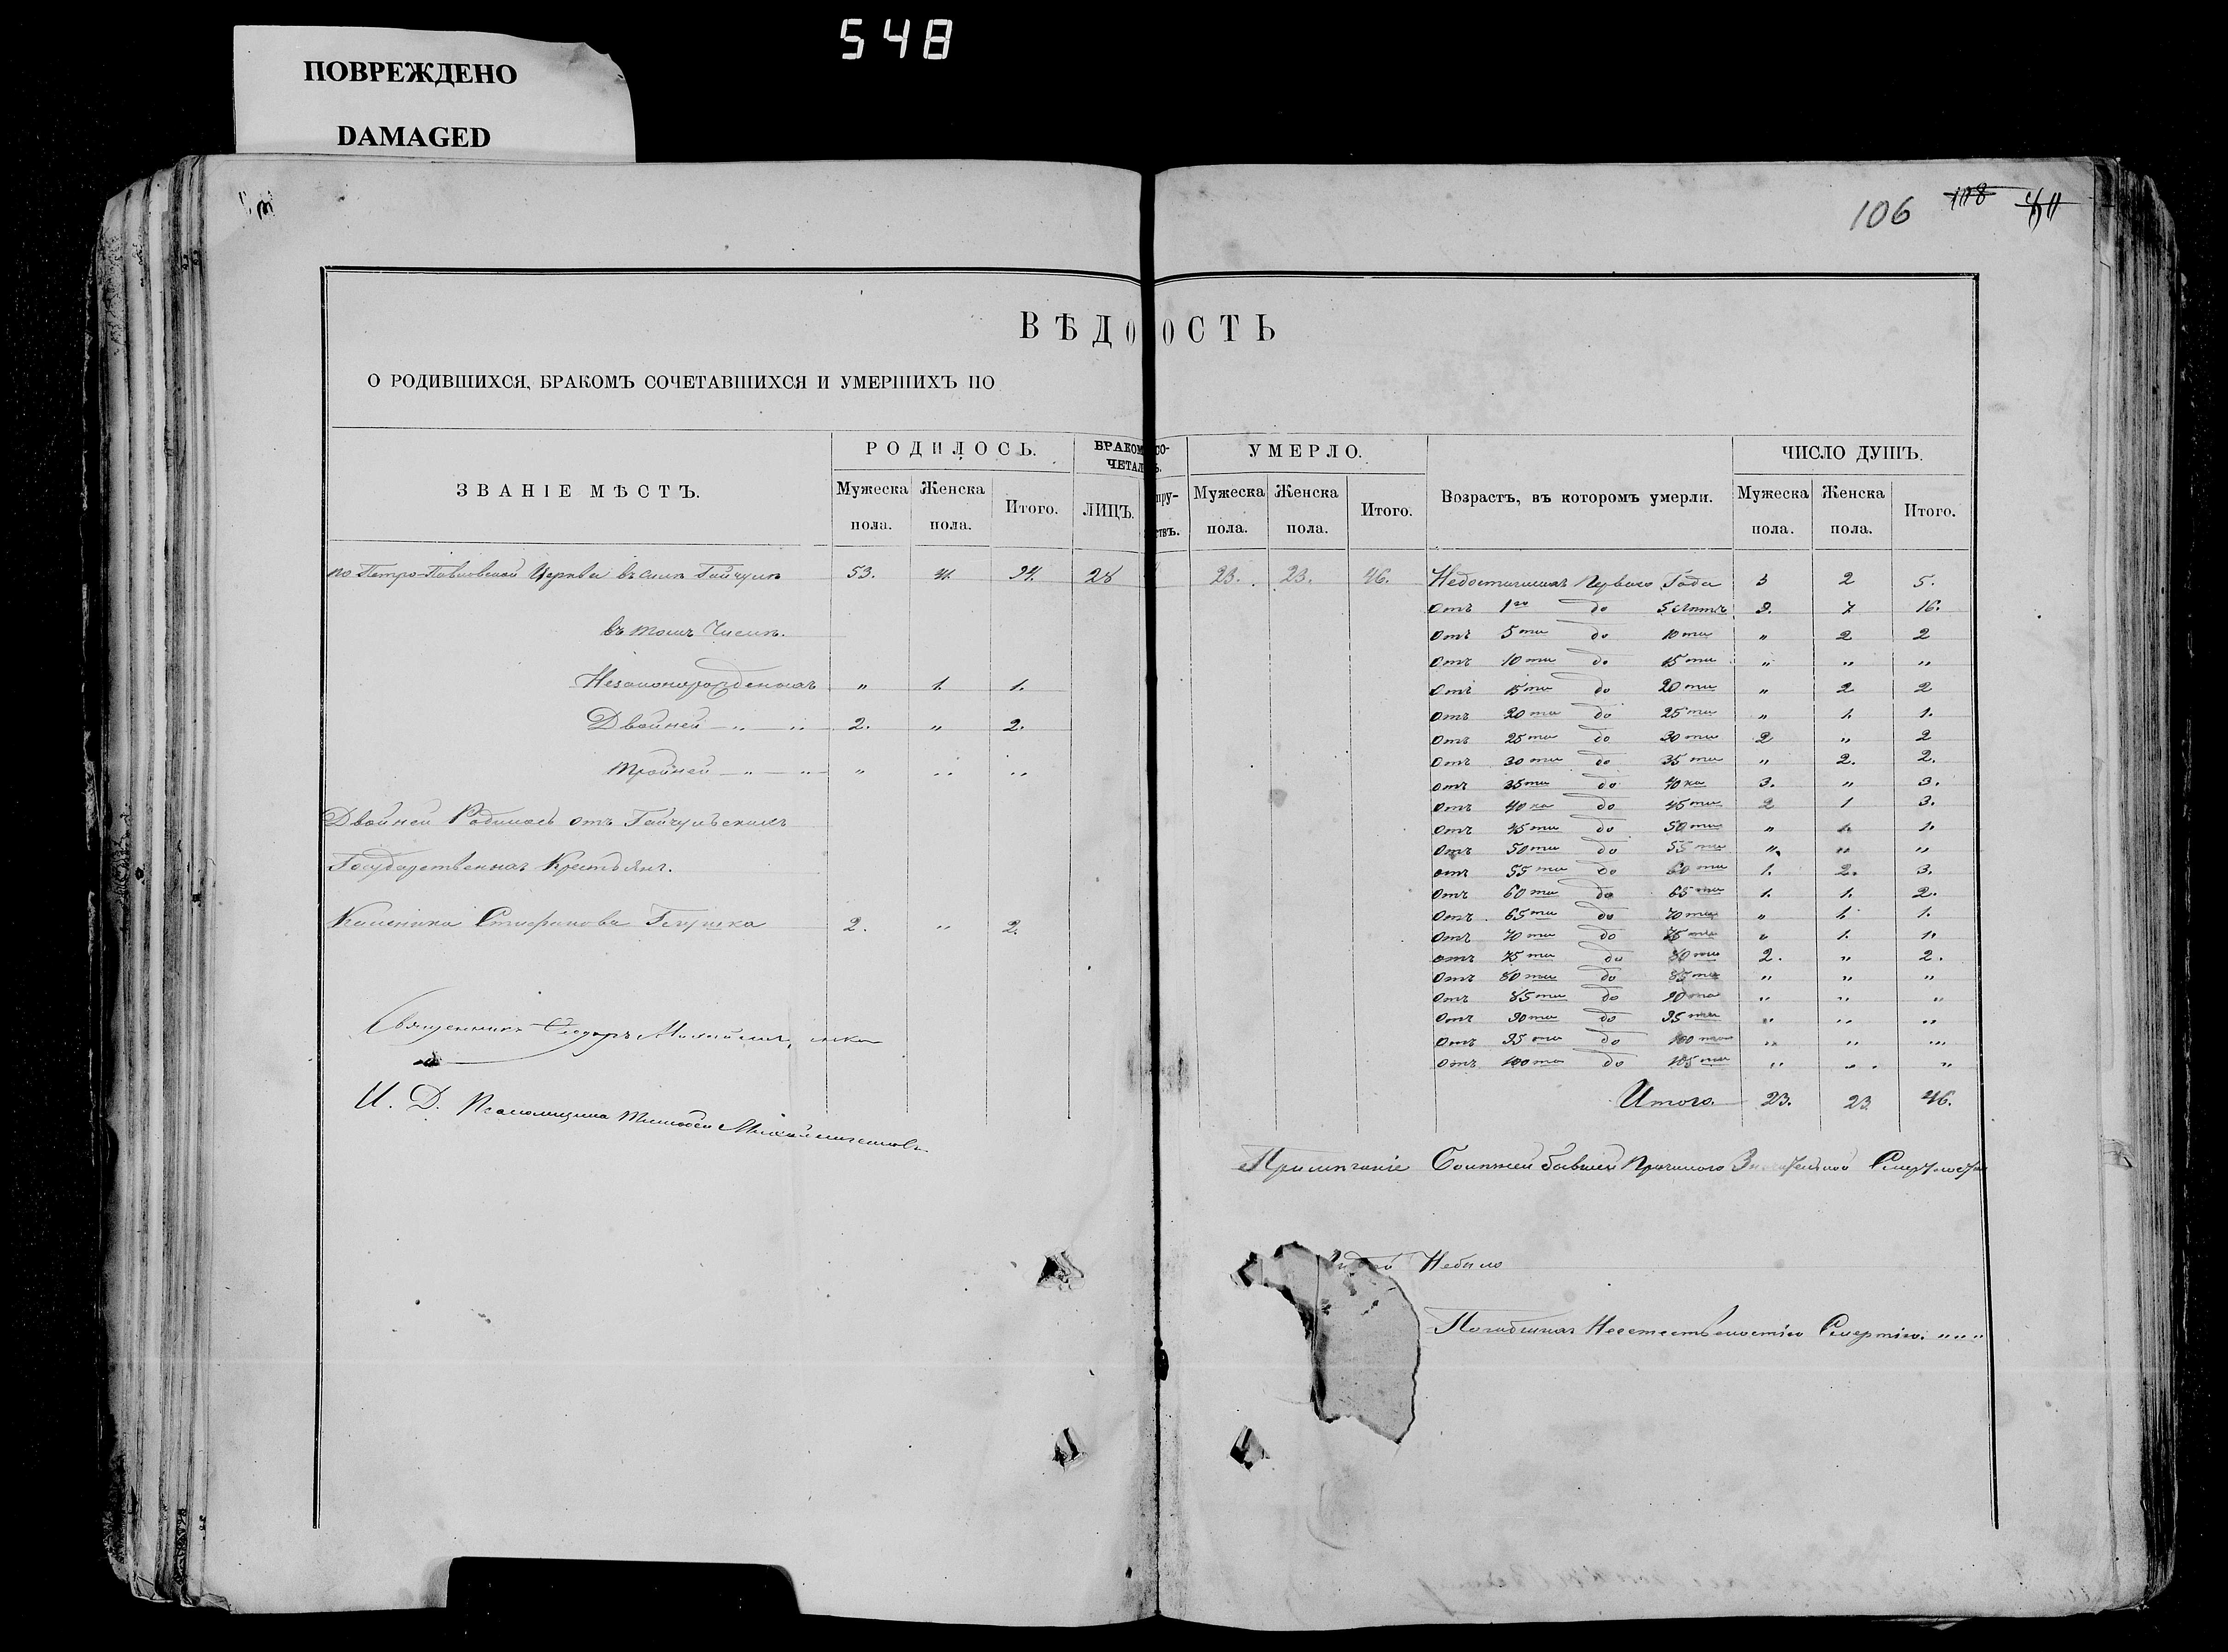 548
ПОВРЕЖДЕНО
DAMAGED
106 108
ВѢДО ОСТЬ
О РОДИВШИХСЯ, БРАКОМЪ СОЧЕТАВШИХСЯ И УМЕРШИХЪ ПО
ЗВАНІЕ МѢСТЪ. РОДИЛОСЬ. БРАКОМ СО- УМЕРЛО. Возрастъ, въ которомъ умерли. ЧИСЛО ДУШЪ.
ЧЕТАЛ Ь.
Мужеска Женска Итого. ЛИЦЪ. пру- Мужеска Женска Итого. Мужеска Женска Итого.
пола. пола. ствъ. пола. пола. пола. пола.
по Петро-Павловской Церкви въ селѣ Гайчулѣ 53. 41. 94. 28 23. 23. 46. Недостигшихъ Перваго Года 3 2 5.
Отъ 1го до 5 лѣтъ 9. 7. 16.
въ томъ Числѣ. Отъ 5ти до 10ти „ 2 2
Отъ 10ти до 15ти „ „ „
Незаконорожденныхъ „ 1. 1. Отъ 15ти до 20ти „ 2 2
Отъ 20ти до 25ти „ 1. 1.
Двойней „ „ 2. „ 2. Отъ 25ти до 30ти 2 „ 2
Отъ 30ти до 35ти „ 2. 2.
Тройней „ „ „ „ „ отъ 35ти до 40ка 3. „ 3.
Отъ 40ка до 45ти 2 1 3.
Двойней Родилось отъ Гайчульскихъ Отъ 45ти до 50ти „ 1. 1.
Отъ 50ти до 55ти „ „ „
Государственныхъ Крестьянъ. отъ 55ти до 60ти 1. 2. 3.
Отъ 60ти до 65ти 1. 1. 2.
Стефанова 2. „ 2. Отъ 65ти до 70ти „ 1. 1.
Отъ 70ти до 75ти „ 1. 1.
отъ 75ти до 80ти 2. „ 2.
Отъ 80ти до 85ти „ „ „
Отъ 85ти до 90та „ „ „
Священникъ Феодоръ Отъ 90та до 95ти „ „ „
Отъ 95ти до 100та „ „ „
Отъ 100та до 105ти „ „ „
И. Д. Псаломщика Тимофей Итого 23. 23 46.
Примѣчаніе Болѣзней бывшей Причиною Значительной Смертности
Небыло
Погибшихъ Неестественностію Смертію. „ „ „